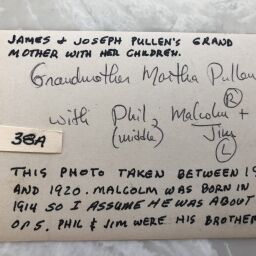 JAMES & JOSEPH PULLEN'S GRAND
MOTHER WITH HER CHILDREN.
Grandmother Martha Pullen
with Phil, Malcolm (R) +
(middle) Jim
(L)
38A
THIS PHOTO TAKEN BETWEEN 19
AND 1920. MALCOLM WAS BORN IN
1914 SO I ASSUME HE WAS ABOUT
OR 5. PHIL & JIM WERE HIS BROTHER